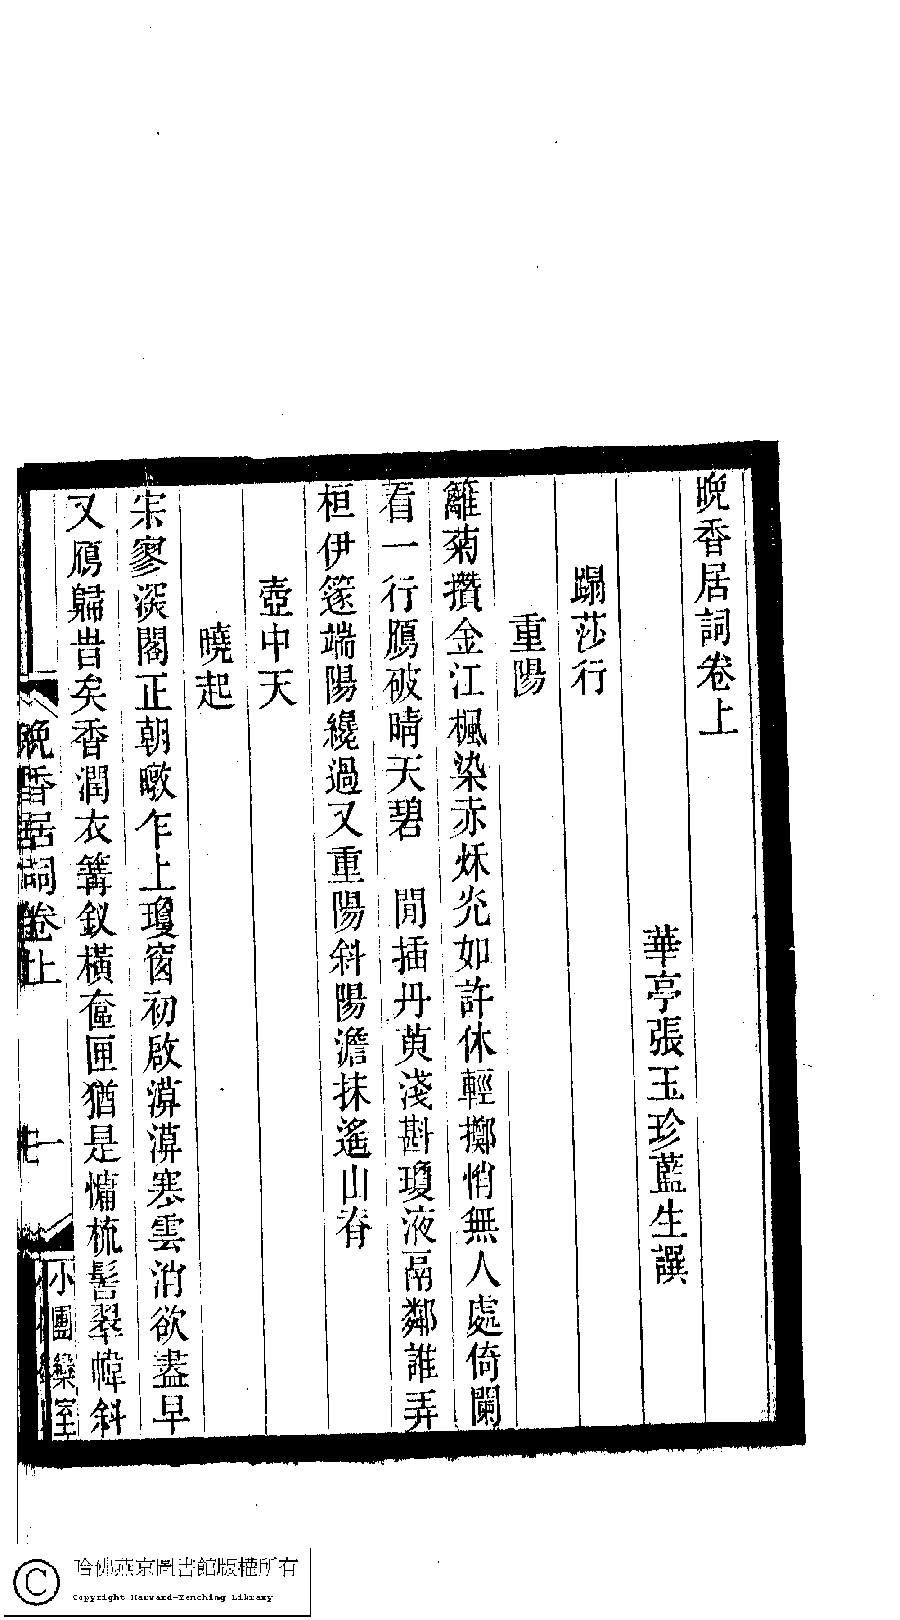 晚香居詞卷上
華亭張玉珍藍生譔
蹋莎行
重陽
籬菊攢金江楓染赤秌光如許休輕擲悄無人處倚闌
看一行鴈破晴天碧　閒插丹萸淺斟瓊液鬲鄰誰弄
桓伊篴端陽纔過又重陽斜陽澹抹遙山脊
壺中天
曉起
宗寥深閣正朝暾乍上瓊窗初啟漭漭寒雲消欲盡早
又鴈歸旹矣香潤衣篝釵橫奩匣猶是慵梳髻翠幃斜
晚香居詞卷上
一
小團欒室
哈佛燕京圖書館版權所有
Copyright Harvard-Yenching Library